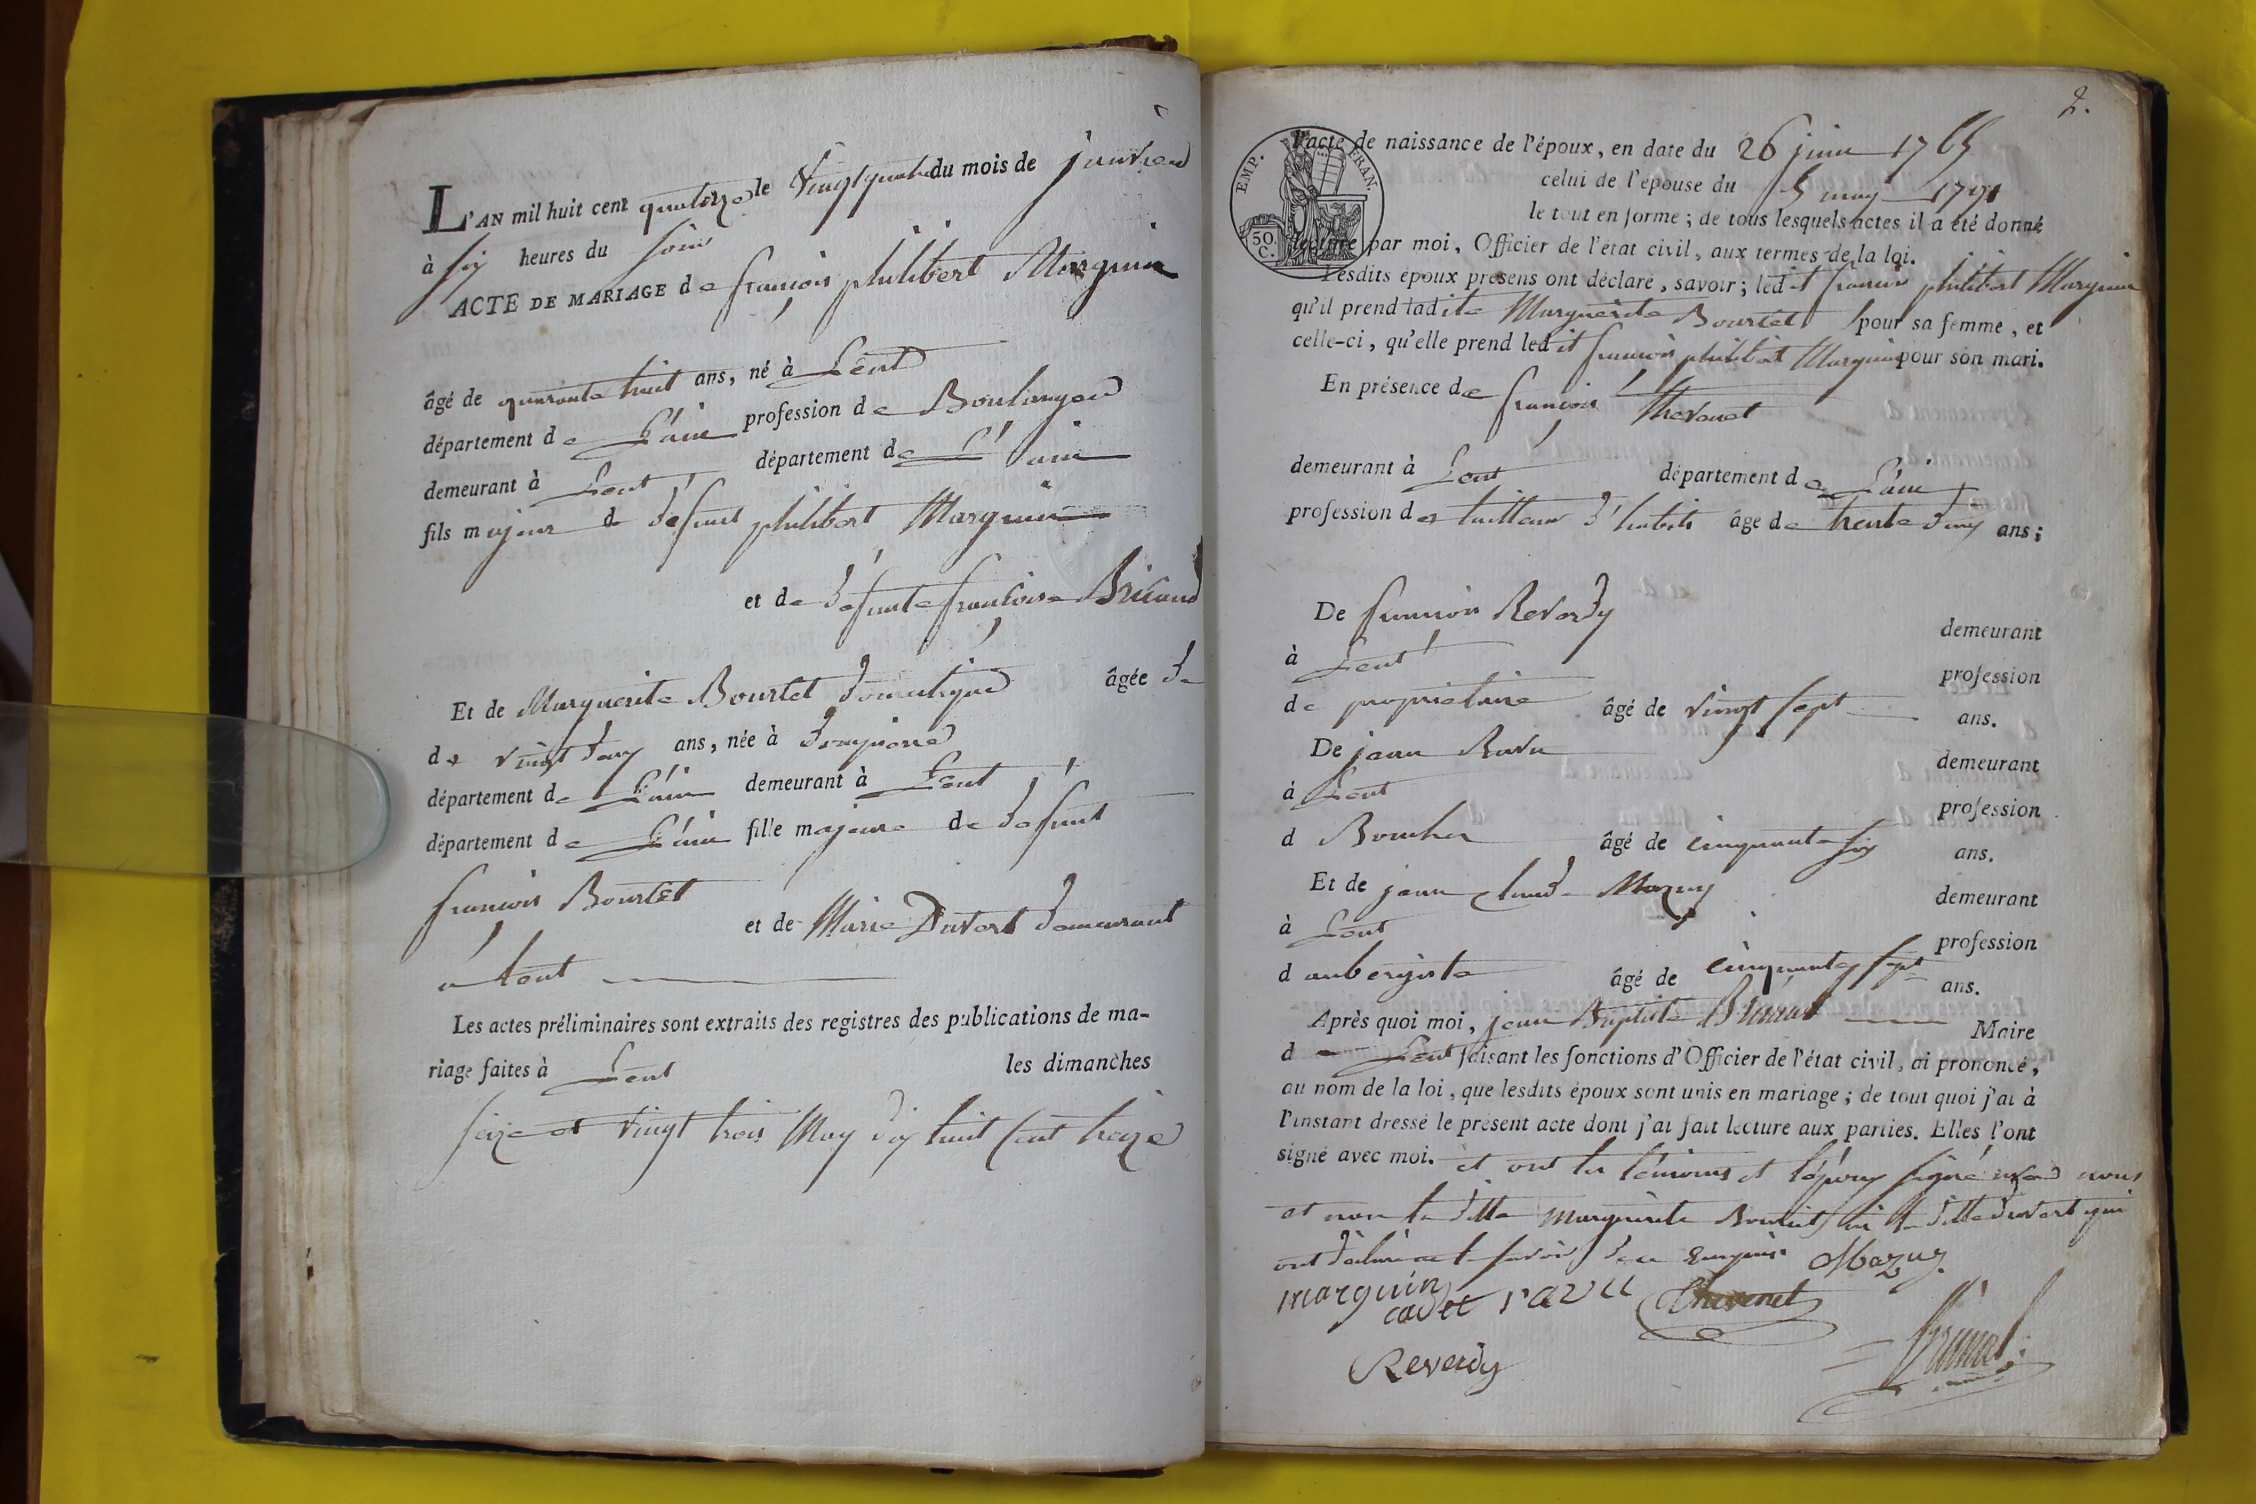 L'AN mil huit cent quatorze le vingt quatre du mois de janvier
à six heures du soir
ACTE DE MARIAGE de françois philibert Marguin
âgé de quarante huit ans, né à Lent
département de L'ain profession de Boulanger
demeurant à Lent département de L'ain
fils majeur de défunt philibert Marguin
et de défunte françoise Bricaud
Et de Marguerite Bourtet domestique âgée de
de vingt deux ans, née à dompierre
département de L'ain demeurant à Lent
département de L'ain fille majeure de défunt
françois Bourtet
et de Marie Duvert demeurant
a Lent
Les actes préliminaires sont extraits des registres des publications de ma-
riage faites à Lent les dimanches
seize et vingt trois May dix huit cent treize
2.
EMP. FRAN.
50. C.
l'acte de naissance de l'époux, en date du 26 juin 1765
celui de l'épouse du 5 may 1791
le tout en forme; de tous lesquels actes il a été donné
lecture par moi, Officier de l'état civil, aux termes de la loi.
Lesdits époux présens ont déclaré, savoir; ledit françois philibert Marguin
qu'il prend ladite Marguerite Bourtet pour sa femme, et
celle-ci, qu'elle prend ledit françois philibert Marguin pour son mari.
En présence de françois Thevenet
demeurant à Lent département de L'ain
profession de tailleur d'habits âgé de trente deux ans;
De françois Reverdy demeurant
à Lent profession
de propriétaire âgé de vingt sept ans.
De jean Ravu demeurant
à Lent profession
d Boucher âgé de cinquante six ans.
Et de jean claude Mazuy demeurant
à Lent profession
d aubergiste âgé de cinquante sept ans.
Après quoi moi, jean Baptiste Brunet Maire
d Lent faisant les fonctions d'Officier de l'état civil, ai prononcé,
au nom de la loi, que lesdits époux sont unis en mariage; de tout quoi j'ai à
l'instant dressé le présent acte dont j'ai fait lecture aux parties. Elles l'ont
signé avec moi. et ont les témoins et l'époux signé avec nous
et non la ditte Marguerite Bourtet ni la ditte duvert qui
ont déclaré ne le savoir de ce enquis Mazuy
marguin
cadet ravu Thevenet
Reverdy Brunet